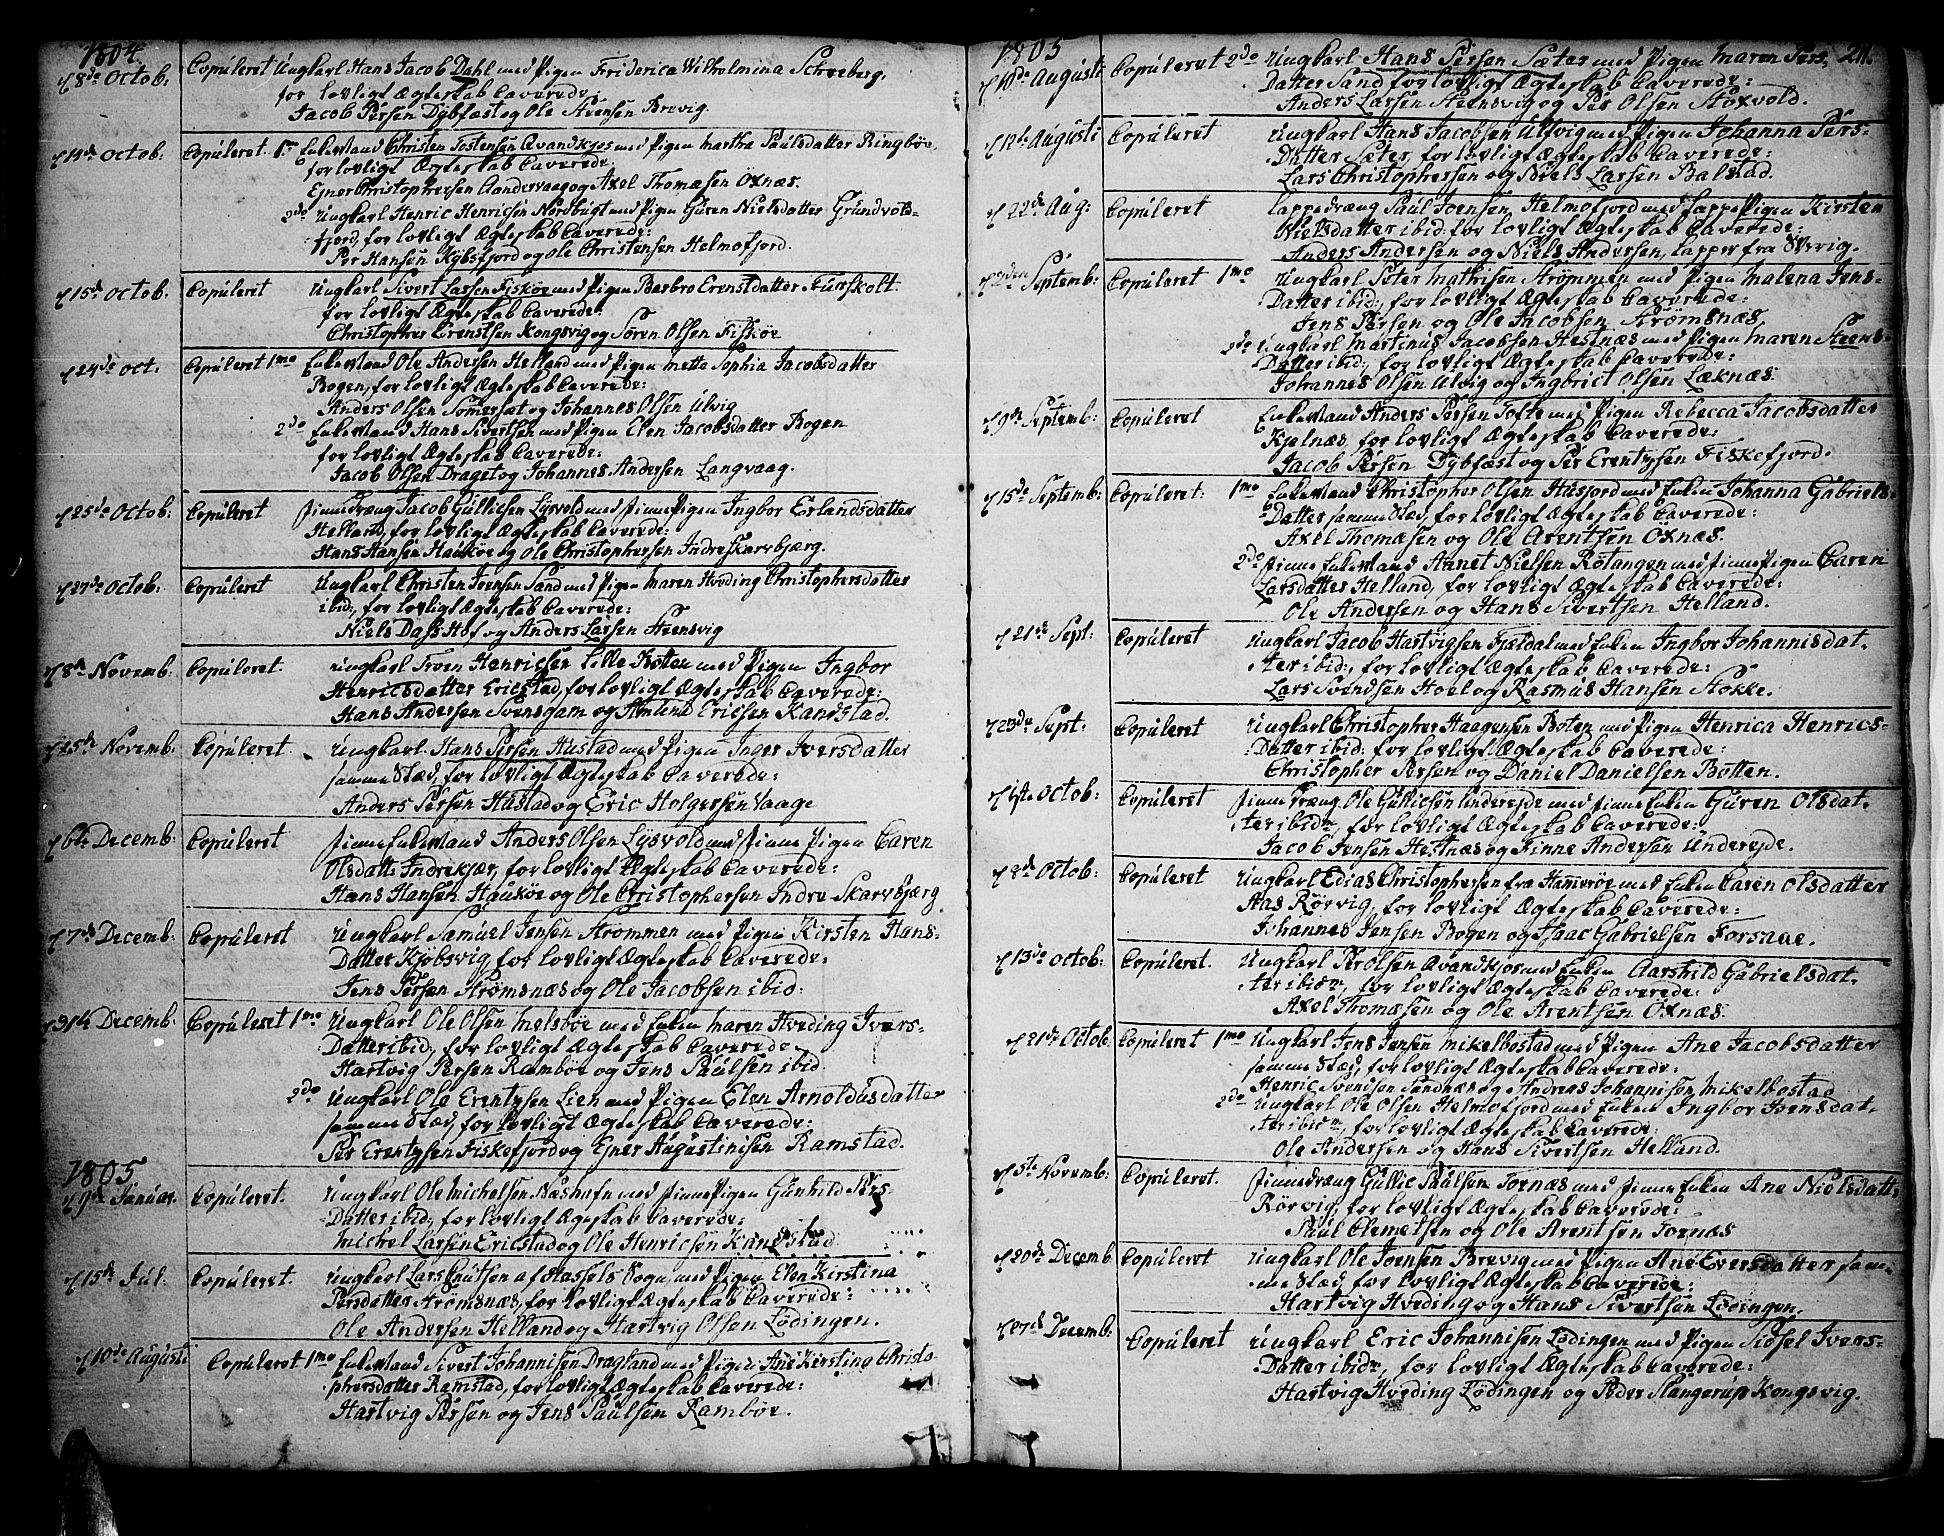 1804.
d 8de Octob: Copúleret Ungkarl Hans Jacob Dahl med Pigen Friderica Wilhelmina Schreberg,
for lovligt Ægteskab Caverede:
Jacob Persen Dybfæst og Ole Stensen Brevig
d 14de Octob: Copúleret 1mo Enkemand Christen Tostensen Qvandkjos med Pigen Martha Paúlsdatter Ringbøe,
for lovligt Ægteskab Caverede:
Ejner Christophersen Sandervaag og Axel Thomæsen Oxnæs.
2do Ungkarl Henric Henricsen Nordbugt med Pigen Gúren Nielsdatter Grúndvots-
fjord, for lovligt Ægteskab Caverede:
Per Hansen Kjøbsfjord og Ole Christensen Helmofjord.
d 15de Octob. Copúleret Ungkarl Sivert Larsen Fiskøe med Pigen Barbro Erenstdatter Fúrskolt
for lovligt Ægteskab Caverede:
Christopher Erenstsen Kongsvig og Søren Olsen Fiskøe
d 24de Oct. Copúleret 1mo Enkemand Ole Andersen Helland med Pigen Metta Sophia Jacobsdatter
Bogen, for lovligt Ægteskab Caverede:
Anders Olsen Somersæt og Johannes Olsen Ulvig
2do Enkemand Hans Sivertsen med Pigen Elen Jacobsdatter Bogen
for lovligt Ægteskab Caverede:
Jacob Olsen Draget og Johannes Andersen Langvaag.
d 25de Octob: Copúleret Finnedræng Jacob Gúllicsen Lysvold med Finnepigen Ingbor Erlandsdatter
Helland, for lovligt Ægteskab Caverede:
Hans Hansen Haúkøe og Ole Christophersen Indre Skarvbjærg.
d 27de Octob: Copúleret Ungkarl Christen Joensen Sand med Pigen Maren Hveding Christophersdatter
ibid; for lovligt Ægteskab Caverede:
Niels Dass Hof og Anders Larsen Steensvig
d 8de Novemb: Copúleret. Ungkarl Troen Henricsen Lille Kotten med Pigen Ingbor
Henricsdatter Ericstad, for lovligt Ægteskab Caverede:
Hans Andersen Svensgam og Amúnd Ericsen Kandstad.
d 25de Novemb: Copúleret. Ungkarl Hans Persen Hústad med Pigen Inger Iversdatter
samme Stæd, for lovligt Ægteskab Caverede:
Anders Persen Hústad og Eric Holgersen Vaage
d 6te Decemb: Copúleret Finne Enkemand Anders Olsen Lysvold med Finne Pigen Caren
Olsdatt: Indrekjær, for lovligt Ægteskab Caverede:
Hans Hansen Haúkøe og Ole Christophersen Indre Skarvbjærg
d 7de Decemb: Copúleret Ungkarl Samúel Jensen Strømmen med Pigen Kirsten Hans-
Datter Kjøbsvig, for lovligt Ægteskab Caverede:
Jens Persen Strømsnæs og Ole Jacobsen ibid:
d 31te Decemb: Copúleret 1mo Ungkarl Ole Olsen Melsbøe med Enken Maren Hveding Ivers-
Datter ibid; for lovligt Ægteskab Caverede.
Hartvig Persen Rambøe og Jens Paúlsen ibid.
2do Ungkarl Ole Erentysen Lien med Pigen Elen Arnoldúsdatter
samme Stæd, for lovligt Ægteskab Caverede:
Per Erentysen Fiskefjord og Ejner Aúgústinisen Ramstad.
1805.
d 9de Janúar. Copúleret. Ungkarl Ole Michelsen Nashúfn med Finne Pigen Gúnhild Pers-
Datter ibid; for lovligt Ægteskab Caverede:
Michel Larsen Ericstad og Ole Henricsen Kandstad.
d 15de Júl. Copúleret. Ungkarl Lars Knútsen af Hassels Sogn, med Pigen Elen Kirstina
Persdatter Strømsnæs, for lovligt Ægteskab Caverede:
Ole Andersen Helland og Hartvig Olsen Lødingen.
d 10de Augusti Copúleret 1mo Enkemand Sivert Johannisen Dragland med Pigen Ane Kirstina Christo-
phersdatter Ramstad, for lovligt Ægteskab Caverede:
Hartvig Persen og Jens Paúlsen Rambøe.
1805
d 10de Augusti Copúleret 2do Ungkarl Hans Persen Sæter med Pigen Maren Pers- 211.
Datter Sand for lovligt Ægteskab Caverede:
Anders Larsen Steensvig og Per Olsen Stoxvold.
d 12te Augusti Copúleret Ungkarl Hans Jacobsen Ulvig med Pigen Johanna Pers-
Datter Sæter, for lovligt Ægteskab Caverede:
Lars Christophersen og Niels Larsen Balstad.
d 22de Aug: Copúleret Lappedræng Paúl Joensen Helmofjord med Lappe Pigen Kirsten
Nielsdatter ibid for lovligt Ægteskab Caverede:
Anders Andersen og Niels Andersen, Lapper fra Sverig.
d 2den Septemb: Copúleret 1mo Ungkarl Peter Mathisen Strømmen med Pigen Malena Jens-
Datter ibid; for lovligt Ægteskab Caverede:
Jens Persen og Ole Jacobsen Strømsnæs
2do Ungkarl Martinus Jacobsen Hestnæs med Pigen Maren Steens-
Datter ibid; for lovligt Ægteskab Caverede:
Johannes Olsen Ulvig og Ingbrict Olsen Læknæs.
d 9de Septemb: Copúleret Enkemand Anders Persen Tofte med Pigen Rebecca Jacobsdatter
Kjølnæs, for lovligt Ægteskab Caverede:
Jacob Persen Dybfæst og Per Erentysen Fiskefjord.
d 15de Septemb: Copúleret: 1mo Enkemand Christopher Olsen Húsjord med Enken Johanna Gabriels-
Datter samme Stæd, for lovligt Ægteskab Caverede:
Axel Thomæsen og Ole Arentsen Oxnæs.
2do Finne Enkemand Aanet Nielsen Rotangen med Finne Pigen Caren
Larsdatter Helland, for lovligt Ægteskab Caverede:
Ole Andersen og Hans Sivertsen Helland.
d 21de Sept: Copúleret Ungkarl Jacob Hartvigsen Fjældal med Enken Ingbor Johannisdat-
ter ibid; for lovligt Ægteskab Caverede:
Lars Svendsen Hoel og Rasmús Hansen Stokke.
d 23de Sept: Copúleret Ungkarl Christopher Haagensen Boten med Pigen Henrica Henrics-
Datter ibid: for lovligt Ægteskab Caverede:
Christopher Persen og Daniel Danielsen Botten.
d 1ste Octob: Copúleret Finne Dræng Ole Gúllicsen Underejde med Finne Enken Gúren Olsdat-
ter ibidm, for lovligt Ægteskab Caverede:
Jacob Jensen Hestnæs og Finne Andersen Underejde.
d 2de Octob: Copúleret Ungkarl Edias Christophersen fra Hammerøe med Enken Caren Olsdatter
Aas Rørvig, for lovligt Ægteskab Caverede:
Johannes Jensen Bogen og Isaac Gabrielsen Forsaae.
d 13de Octob: Copúleret. Ungkarl Per Olsen Qvandkjos med Enken Aarshild Gabrielsdat-
ter ibidm, for lovligt Ægteskab Caverede:
Axel Thomæsen og Ole Arentsen Oxnæs.
d 21de Octob. Copúleret 1mo Ungkarl Jens Jensen Mikelbostad med Pigen Ane Jacobsdatter
samme Stæd, for lovligt Ægteskab Caverede:
Henric Svendsen Sandnæs og Andreas Johannisen Mikelbostad
2do Ungkarl Ole Olsen Helmofjord med Enken Ingbor Joensdat-
ter ibidm, for lovligt Ægteskab Caverede:
Ole Andersen og Hans Sivertsen Helland.
d 5te Novemb: Copúleret. Finnedræng Gúllic Paúlsen Tornæs med Finne Enken Ane Nielsdatt.
Rørvig, for lovligt Ægteskab Caverede:
Paúl Clemetsen og Ole Arentsen Tornæs
d 20de Decemb Copúleret Ungkarl Ole Joensen Brevig med Pigen Ane Eversdatter sam-
me Stæd, for lovligt Ægteskab Caverede:
Hartvig Hveding og Hans Sivertsen Lødingen.
d 27de Decemb: Copúleret Ungkarl Eric Johannisen Lødingen med Pigen Sidsel Ivers-
Datter ibidm, for lovligt Ægteskab Caverede:
Hartvig Hveding Lødingen og Peder Slangerúp Kongsvig.